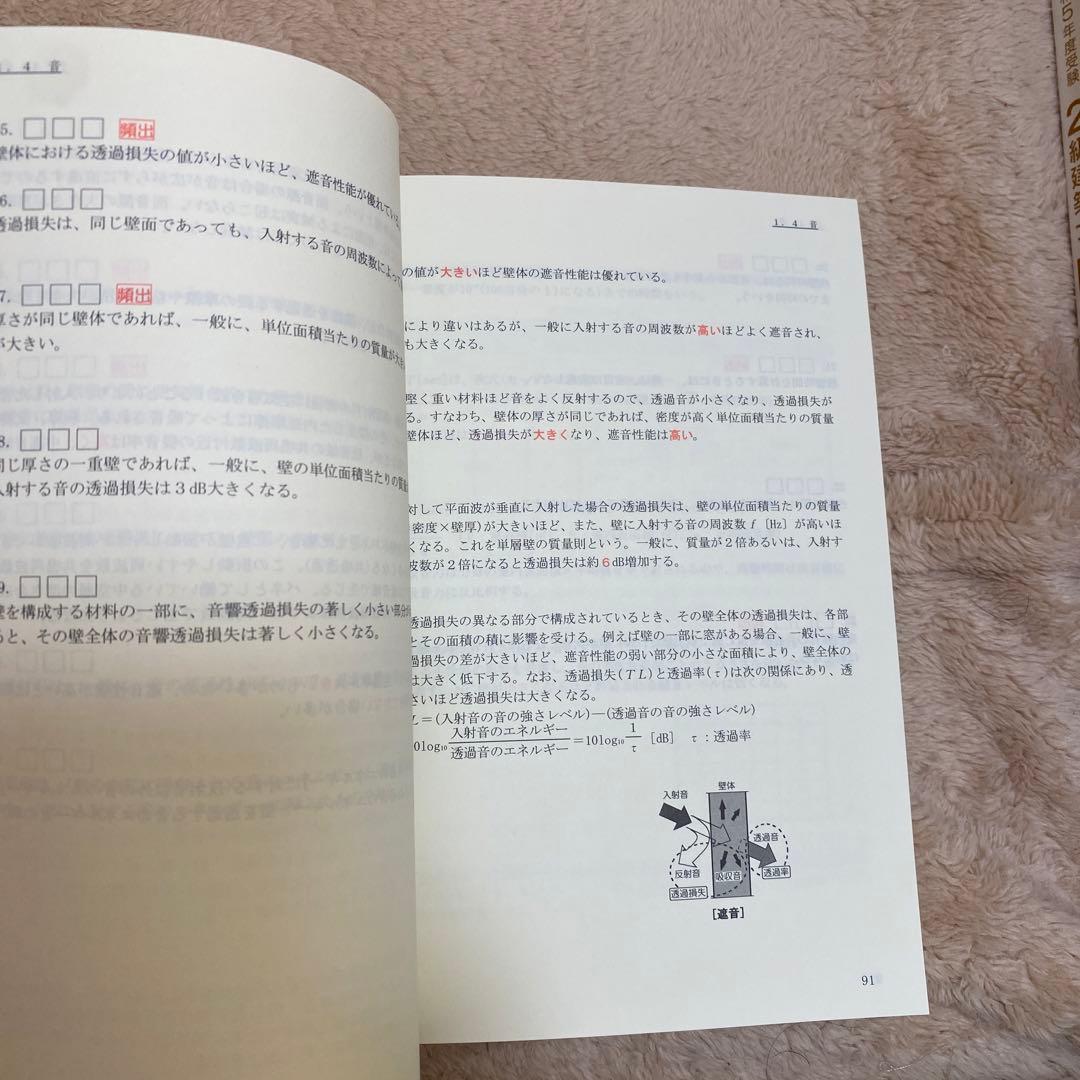 1.4 音
5. □□□ 頻出
壁体における透過損失の値が小さいほど、遮音性能が優れている
6. □□□
透過損失は、同じ壁面であっても、入射する音の周波数によって
7. □□□ 頻出
厚さが同じ壁体であれば、一般に、単位面積当たりの質量が大き
が大きい。
8. □□□
同じ厚さの一重壁であれば、一般に、壁の単位面積当たりの質量
入射する音の透過損失は3dB大きくなる。
9. □□□
壁を構成する材料の一部に、音響透過損失の著しく小さい部分が
ると、その壁全体の音響透過損失は著しく小さくなる。
1.4 音
の値が大きいほど壁体の遮音性能は優れている。
により違いはあるが、一般に入射する音の周波数が高いほどよく遮音され、
も大きくなる。
堅く重い材料ほど音をよく反射するので、透過音が小さくなり、透過損失が
る。すなわち、壁体の厚さが同じであれば、密度が高く単位面積当たりの質量
壁体ほど、透過損失が大きくなり、遮音性能は高い。
対して平面波が垂直に入射した場合の透過損失は、壁の単位面積当たりの質量
密度×壁厚)が大きいほど、また、壁に入射する音の周波数f〔Hz〕が高いほ
くなる。これを単層壁の質量則という。一般に、質量が2倍あるいは、入射す
波数が2倍になると透過損失は約6dB増加する。
透過損失の異なる部分で構成されているとき、その壁全体の透過損失は、各部
とその面積の積に影響を受ける。例えば壁の一部に窓がある場合、一般に、壁
過損失の差が大きいほど、遮音性能の弱い部分の小さな面積により、壁全体の
は大きく低下する。なお、透過損失(TL)と透過率(τ)は次の関係にあり、透
さいほど透過損失は大きくなる。
L=(入射音の音の強さレベル)―(透過音の音の強さレベル)
10log₁₀ 入射音のエネルギー/透過音のエネルギー=10log₁₀ 1/τ [dB] τ:透過率
壁体
入射音
透過音
反射音
吸収音
透過率
透過損失
[遮音]
91
5年度受験
2級建築